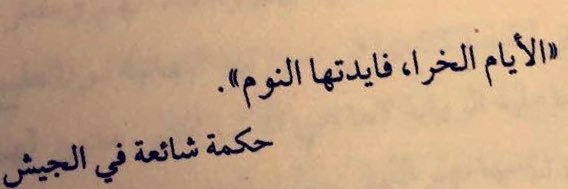 «الأيام الخرا، فايدتها النوم».
حكمة شائعة في الجيش